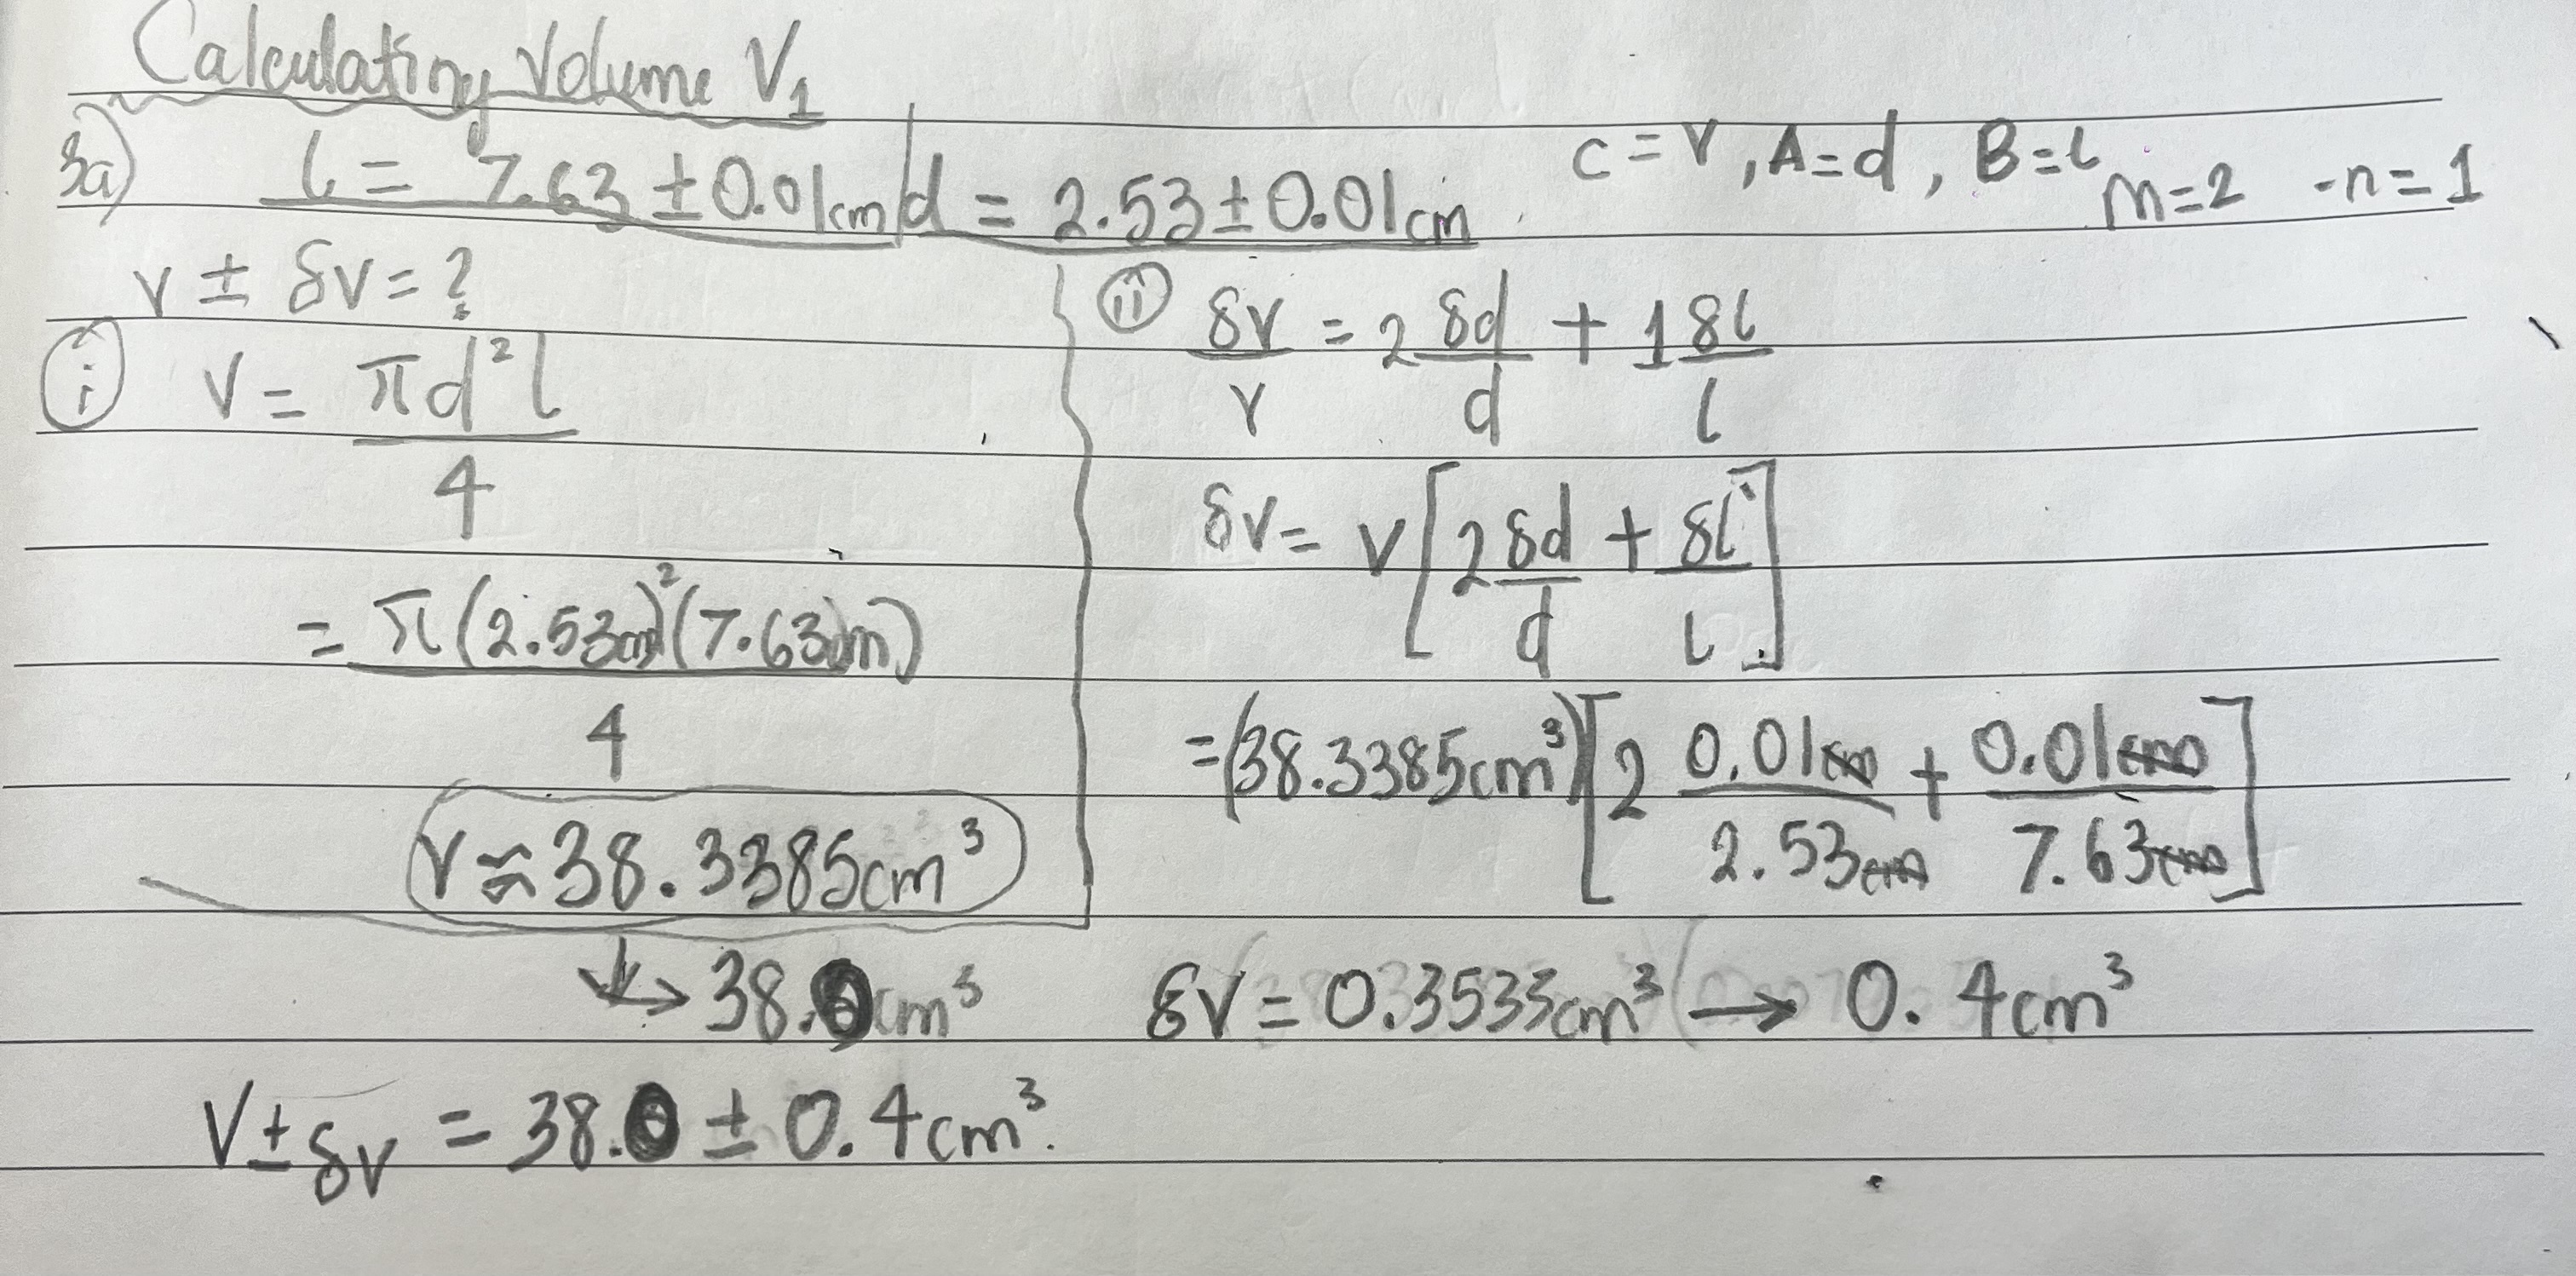 Calculating Volume V₁
3a) l = 7.63 ± 0.01cm / d = 2.53 ± 0.01cm
C = V, A = d, B = l m = 2 - n = 1
V ± δV = ?
(i) V = πd²l / 4
= π(2.53cm)²(7.63cm) / 4
V ≈ 38.3385cm³
↓→ 38.0cm³
(ii) δV/V = 2 δd/d + 1 δl/l
δV = V[2 δd/d + δl/l]
= (38.3385cm³)[2 0.01cm/2.53cm + 0.01cm/7.63cm]
δV = 0.3533cm³ → 0.4cm³
V ± δV = 38.0 ± 0.4cm³.